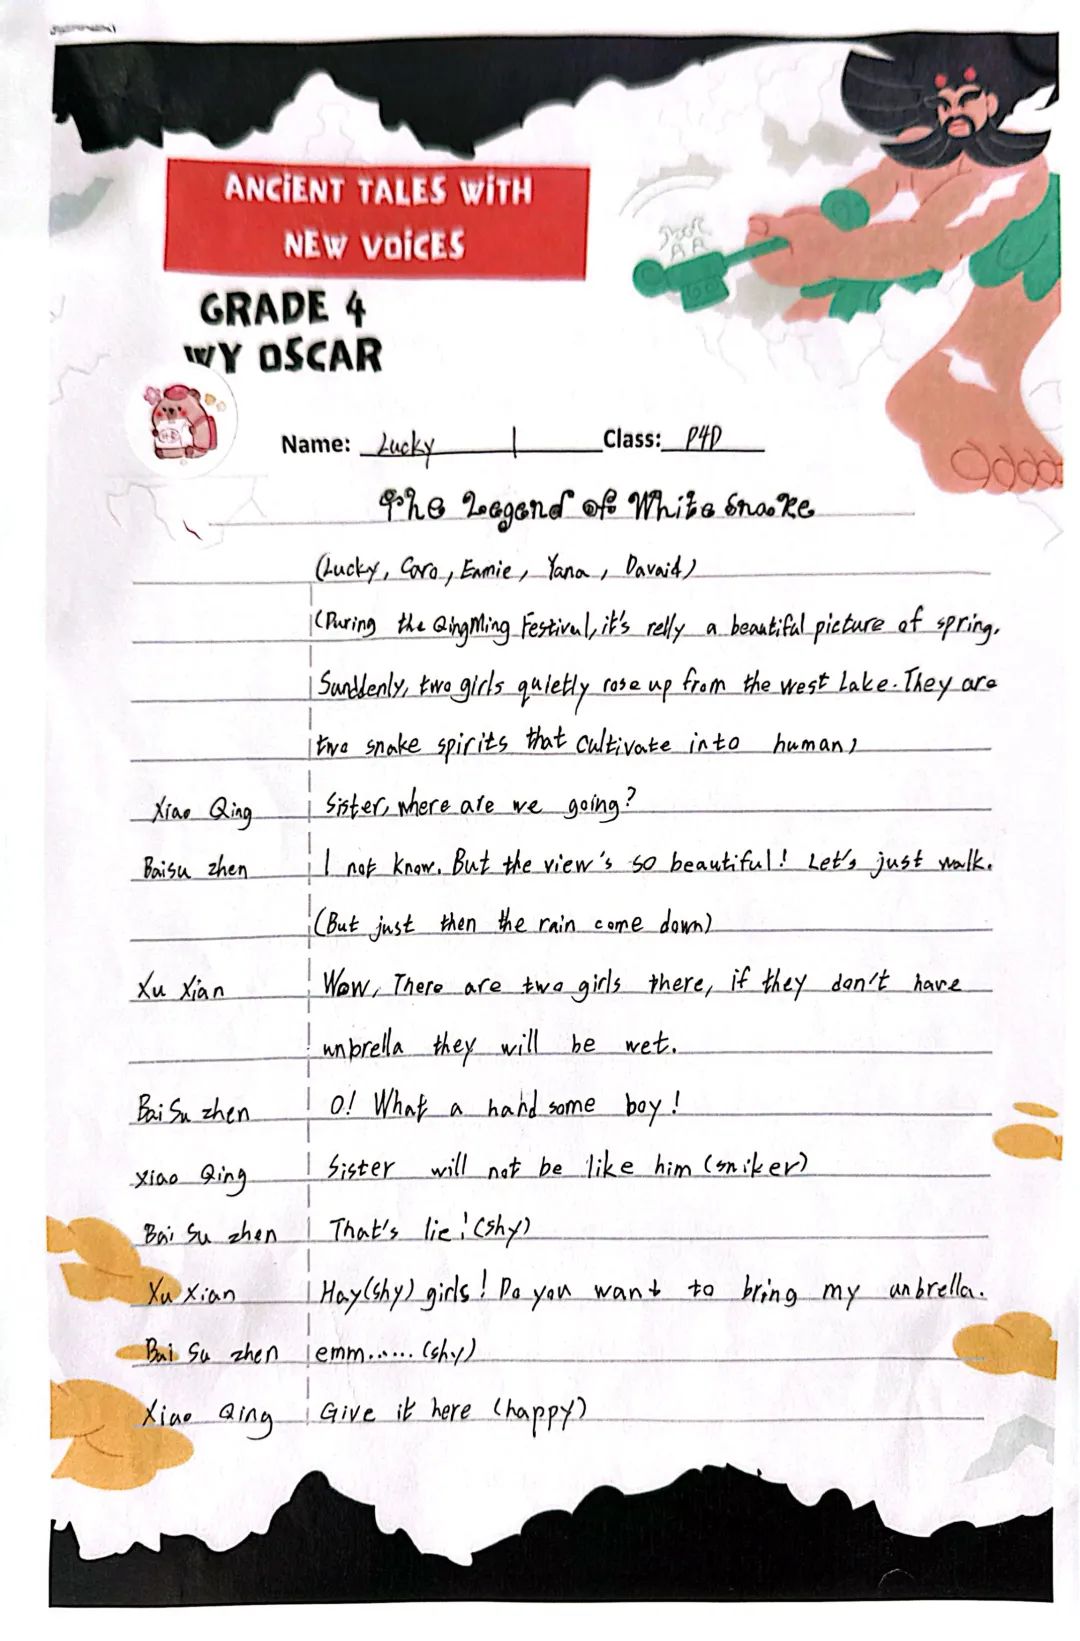 ANCIENT TALES WITH
NEW VOICES
GRADE 4
WY OSCAR
Name: Lucky Class: P4D
The Legend of White Snake
(Lucky, Caro, Eamie, Yana, Davaid)
(During the QingMing Festival, it's relly a beautiful picture of spring.
Sunddenly, two girls quietly rose up from the west Lake. They are
two snake spirits that cultivate into human)
Xiao Qing Sister, where are we going?
Baisu zhen I not know. But the view's so beautiful! Let's just walk.
(But just then the rain come down)
Xu Xian Wow, There are two girls there, if they don't have
unbrella they will be wet.
Bai Su zhen O! What a handsome boy!
Xiao Qing Sister will not be like him (sniker)
Bai Su zhen That's lie! (shy)
Xu Xian Hay(shy) girls! Do you want to bring my unbrella.
Bai Su zhen emm...... (shy)
Xiao Qing Give it here (happy)